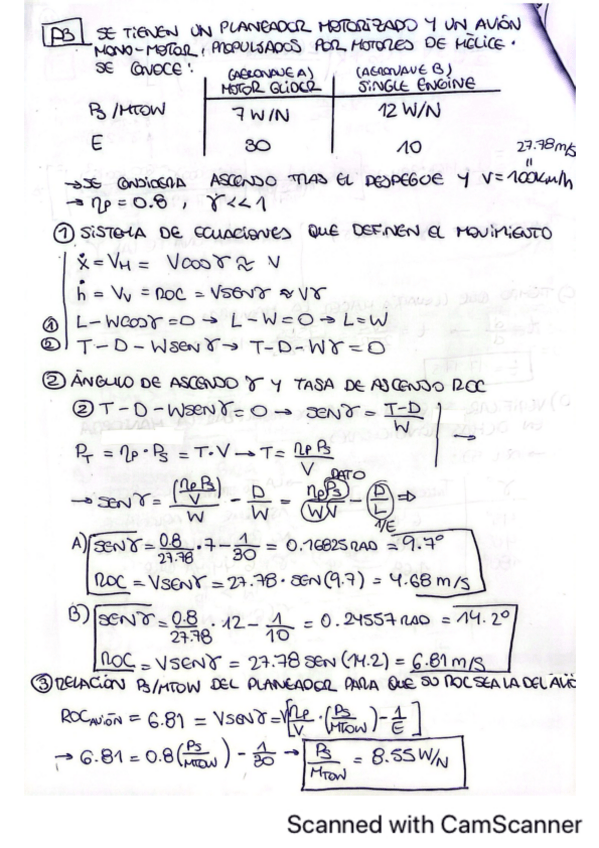 P3 SE TIENEN UN PLANEADOR MOTORIZADO Y UN AVIÓN
MONO-MOTOR, PROPULSADOS POR MOTORES DE HÉLICE.
SE CONOCE: (AERONAVE A) (AERONAVE B)
MOTOR GLIDER SINGLE ENGINE
Ps/MTOW 7 W/N 12 W/N
E 30 10 27.78 m/s
→ SE CONSIDERA ASCENSO TRAS EL DESPEGUE Y V = 100 km/h
→ ηp = 0.8, γ << 1
① SISTEMA DE ECUACIONES QUE DEFINEN EL MOVIMIENTO
ẋ = VH = V cos γ ≈ V
ḣ = Vv = ROC = V SEN γ ≈ Vγ
① L - W cos γ = 0 → L - W = 0 → L = W
② T - D - W SEN γ → T - D - Wγ = 0
② ÁNGULO DE ASCENSO γ Y TASA DE ASCENSO ROC
② T - D - W SEN γ = 0 → SEN γ = (T-D)/W →
PT = ηp · Ps = T · V → T = ηp Ps / V
DATO
→ SEN γ = (ηp Ps / V)/W - D/W = ηp Ps / WV - D/L ⇒
1/E
A) SEN γ = 0.8/27.78 · 7 - 1/30 = 0.16825 RAD = 9.7°
ROC = V SEN γ = 27.78 · SEN(9.7) = 4.68 m/s
B) SEN γ = 0.8/27.78 · 12 - 1/10 = 0.24557 RAD = 14.2°
ROC = V SEN γ = 27.78 SEN(14.2) = 6.81 m/s
③ RELACIÓN Ps/MTOW DEL PLANEADOR PARA QUE SU ROC SEA LA DEL
ROC AVIÓN = 6.81 = V SEN γ = V[ηp/V · (Ps/MTOW) - 1/E]
→ 6.81 = 0.8(Ps/MTOW) - 1/30 → Ps/MTOW = 8.55 W/N
Scanned with CamScanner